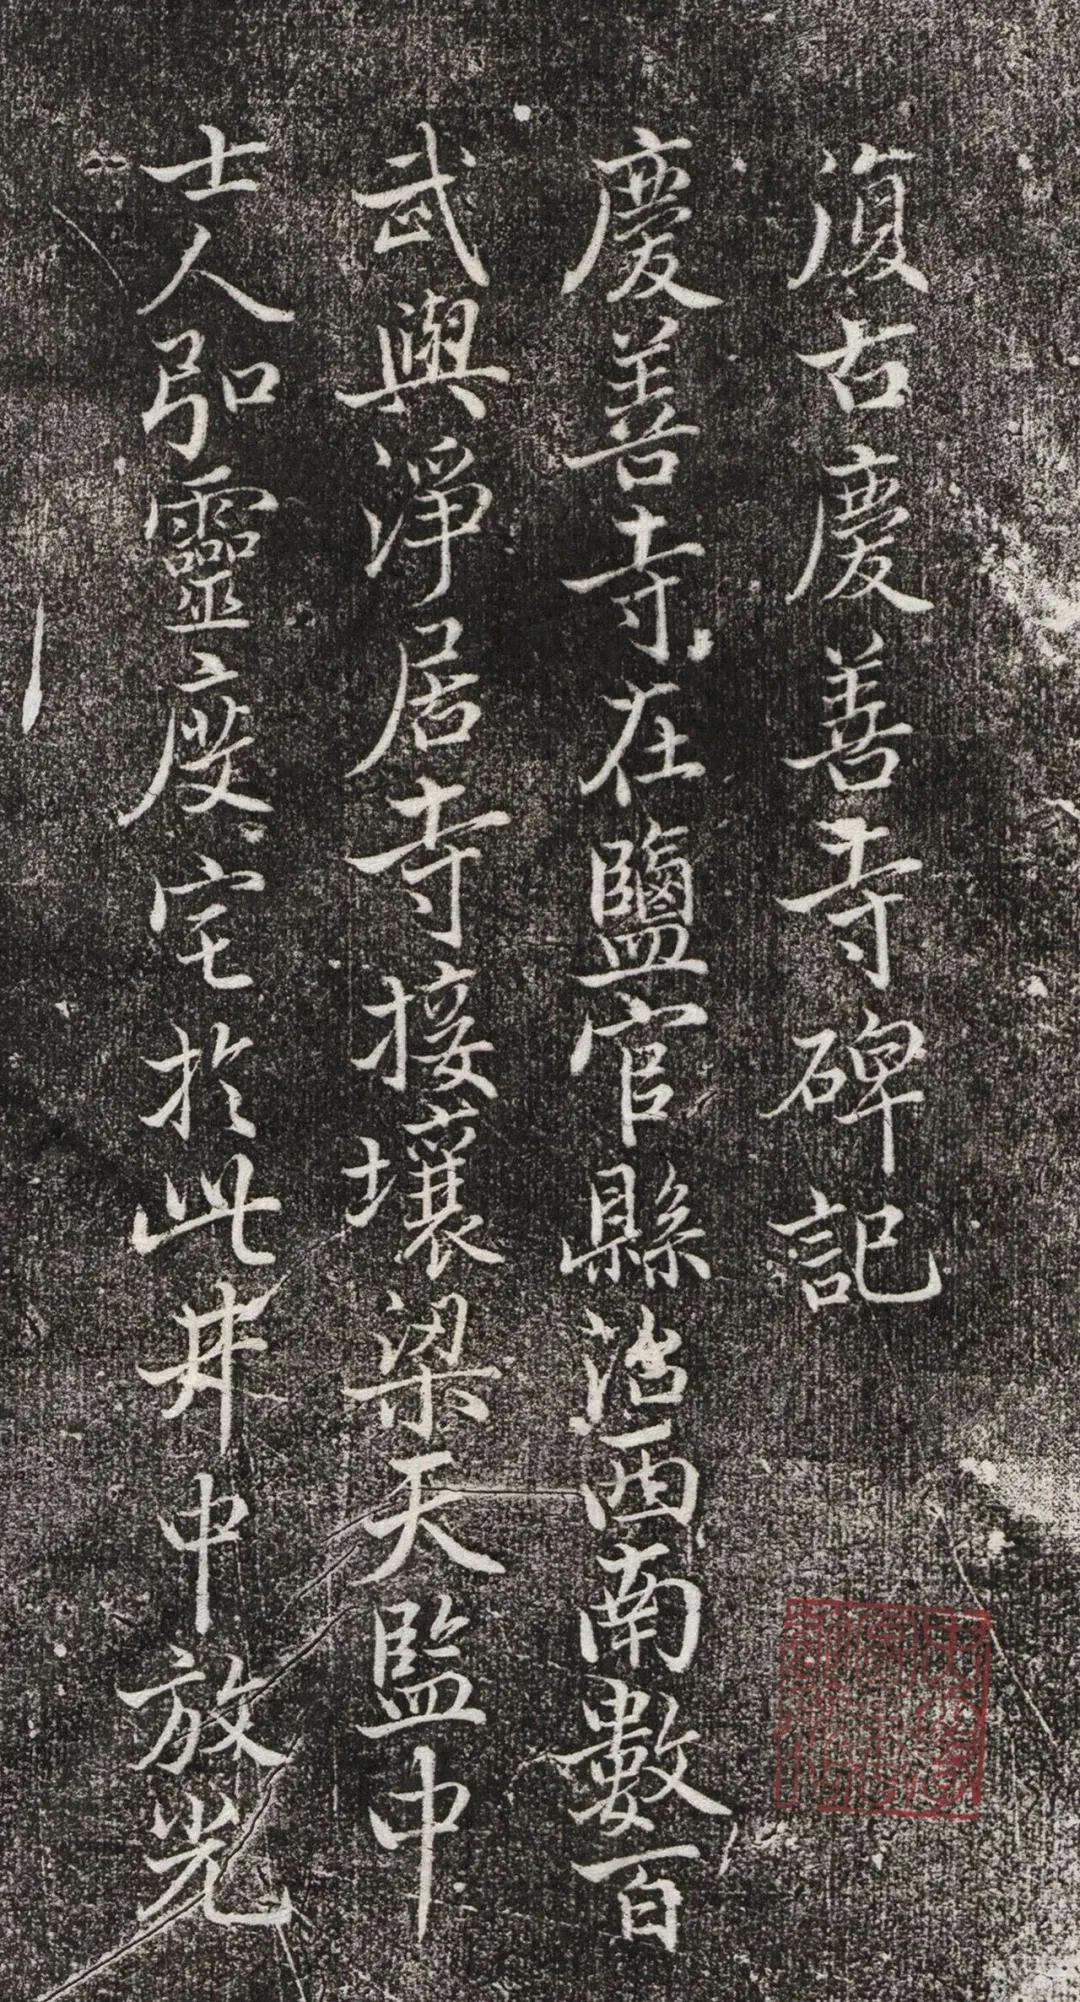 復古慶善寺碑記
慶善寺在鹽官縣治西南數百
武與淨居寺接壤梁天監中
士人弘靈度宅於此井中放光